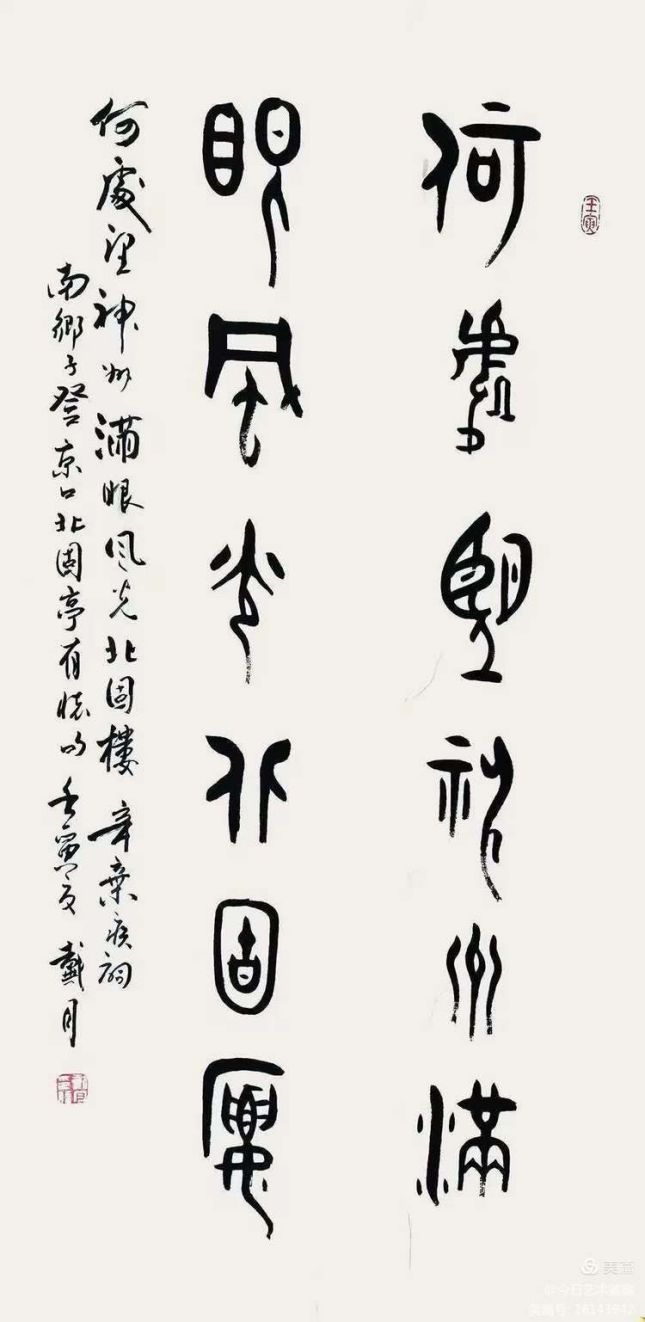 壬寅
何處望神州滿
眼風光北固樓
何處望神州滿眼風光北固樓 辛棄疾詞
南鄉子登京口北固亭有懷 壬寅夏 戴月
美篇
@今日艺术者家
美篇号 16143642